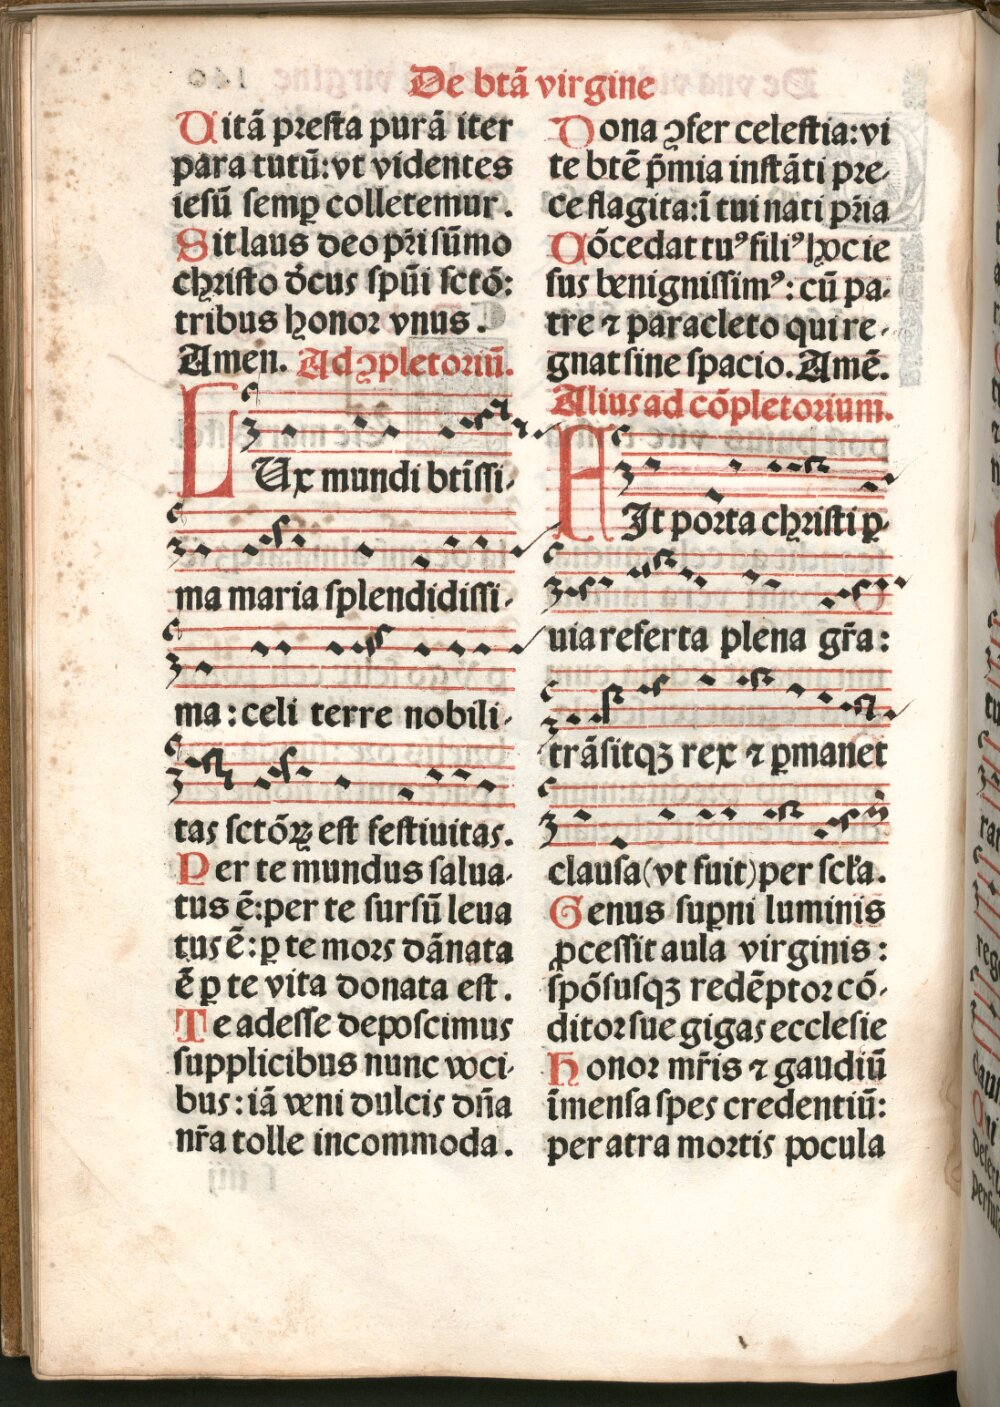 De btã virgine
Uitã presta purã iter
para tutũ: vt videntes
iesũ semꝑ colletemur.
Sit laus deo pr̃i sũmo
christo dc̃us spũi sctõ:
tribus honor vnus.
Amen. Ad ꝯpletoriũ.
LUx mundi btĩssi-
ma maria splendidissi-
ma: celi terre nobili-
tas sctõꝝ est festiuitas.
Per te mundus salua-
tus ẽ: per te sursũ leua
tus ẽ: ꝑ te mors dãnata
ẽ ꝑ te vita donata est.
Te adesse deposcimus
supplicibus nunc voci-
bus: iã veni dulcis dña
nr̃a tolle incommoda.
Dona ꝯfer celestia: vi
te btẽ p̃mia instãti pre-
ce flagita: ĩ tui nati pr̃ia
Cõcedat tuꝰ filiꝰ hoc ie
sus benignissimꝰ: cũ pa-
tre ⁊ paracleto qui re-
gnat sine spacio. Amẽ.
Alius ad cõpletorium.
FIt porta christi ꝑ-
uia referta plena gr̃a:
trãsitqꝫ rex ⁊ ꝑmanet
clausa (vt fuit) per scl̃a.
Genus suꝑni luminis
ꝓcessit aula virginis:
spõsusqꝫ redẽptor cõ-
ditor sue gigas ecclesie
Honor mr̃is ⁊ gaudiũ
ĩmensa spes credentiũ:
per atra mortis pocula